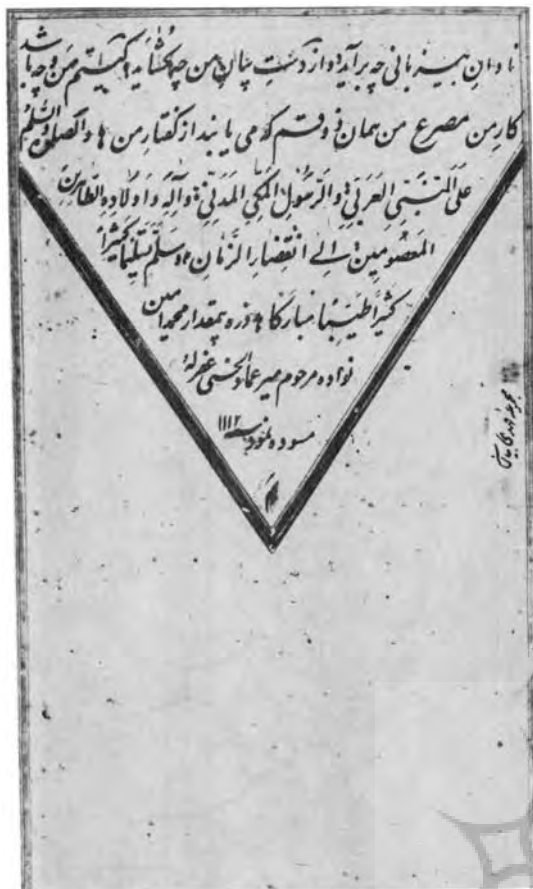 نادان بیزبانی چه برآید و از دست بیان من چه گشاید کیستم من و چه باشد
کار من مصرع من همان ذوقم که می یابند از گفتار من والصلوة والسلام
عَلَی النَّبیِّ العَرَبیِّ وَالرَّسُولِ المَکِّیِ المَدَنِیِّ وَآلِهِ وَاَوْلادِهِ الطَّاهِرینَ
المَعْصُومینَ اِلی انْقِضاءِ الزَّمانِ وَسَلَّمَ تَسْلِیماً کَثیراً
کثیراً طَیِّباً مُبارَکاً ذره بیمقدار محمد امین
نواده مرحوم میر عماد الحسنی غفرله
مسوده نمود سنه ۱۱۱۲
م